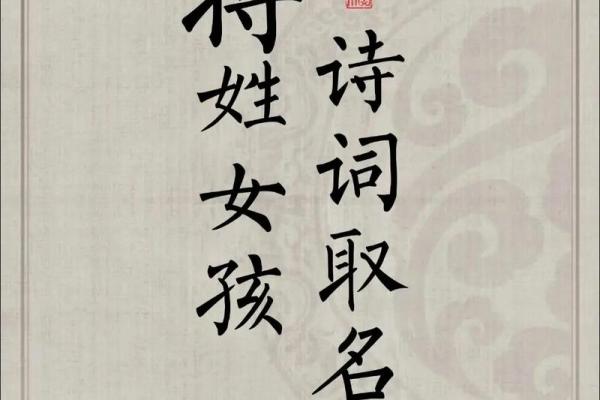 姓女孩
诗词取名